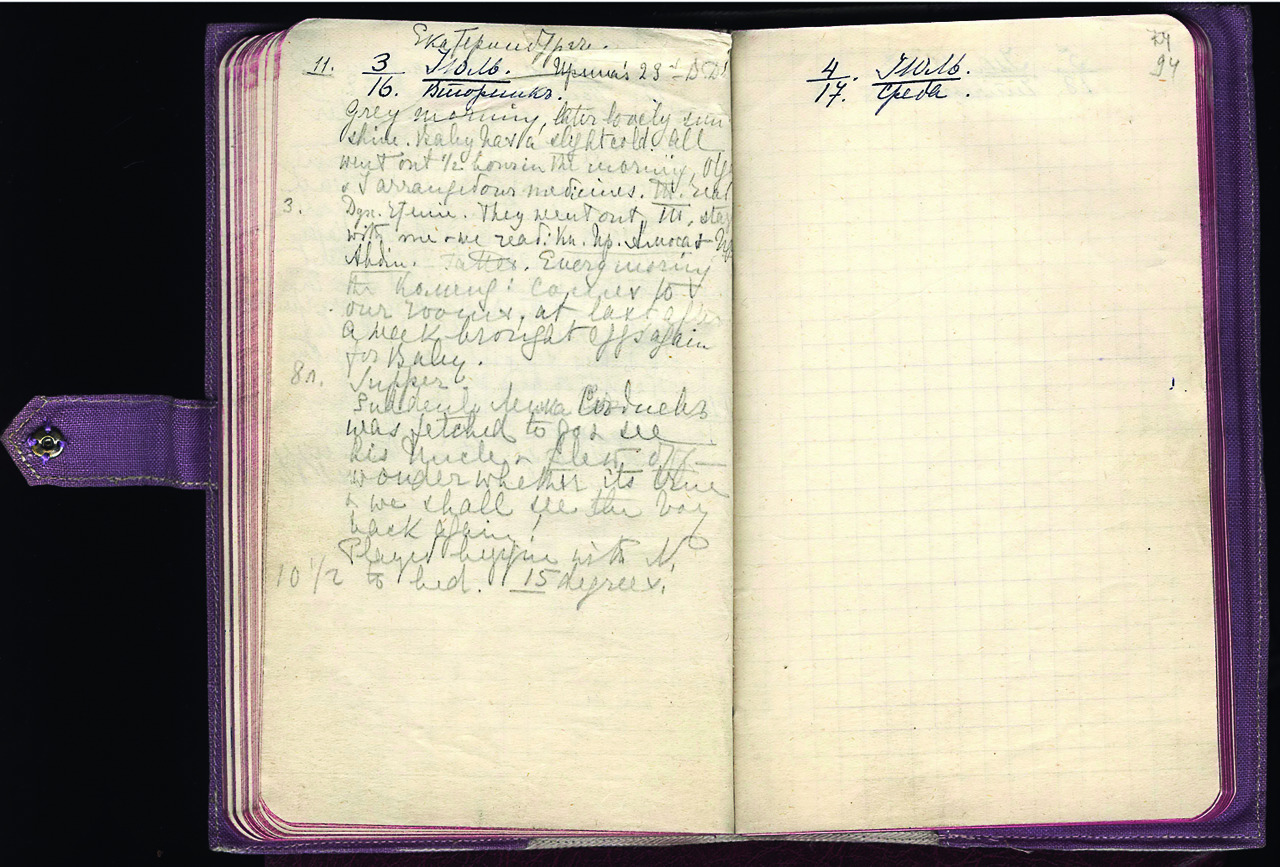 Екатеринбург.
11. 3/16. Июль. Вторникъ. Ирина's 23rd B.D.
Grey morning, later lovely sun
shine. Baby has a slight cold. All
went out ½ hour in the morning, Olga
& I arranged our medicines. T. read
3. They went out, T. stayed
with me & we read: Кн. Пр. Амоса &
Авдія. Tatted. Every morning
the Komend: comes to
our rooms, at last after
a week brought eggs again
for Baby.
8ч. Supper.
Suddenly Лешка Седневъ
was fetched to go & see
his Uncle & flew off —
wonder whether its true
& we shall see the boy
back again!
Played bezique with N.
10 ½ to bed. 15 degrees.
74
94
4/17. Июль. Среда.